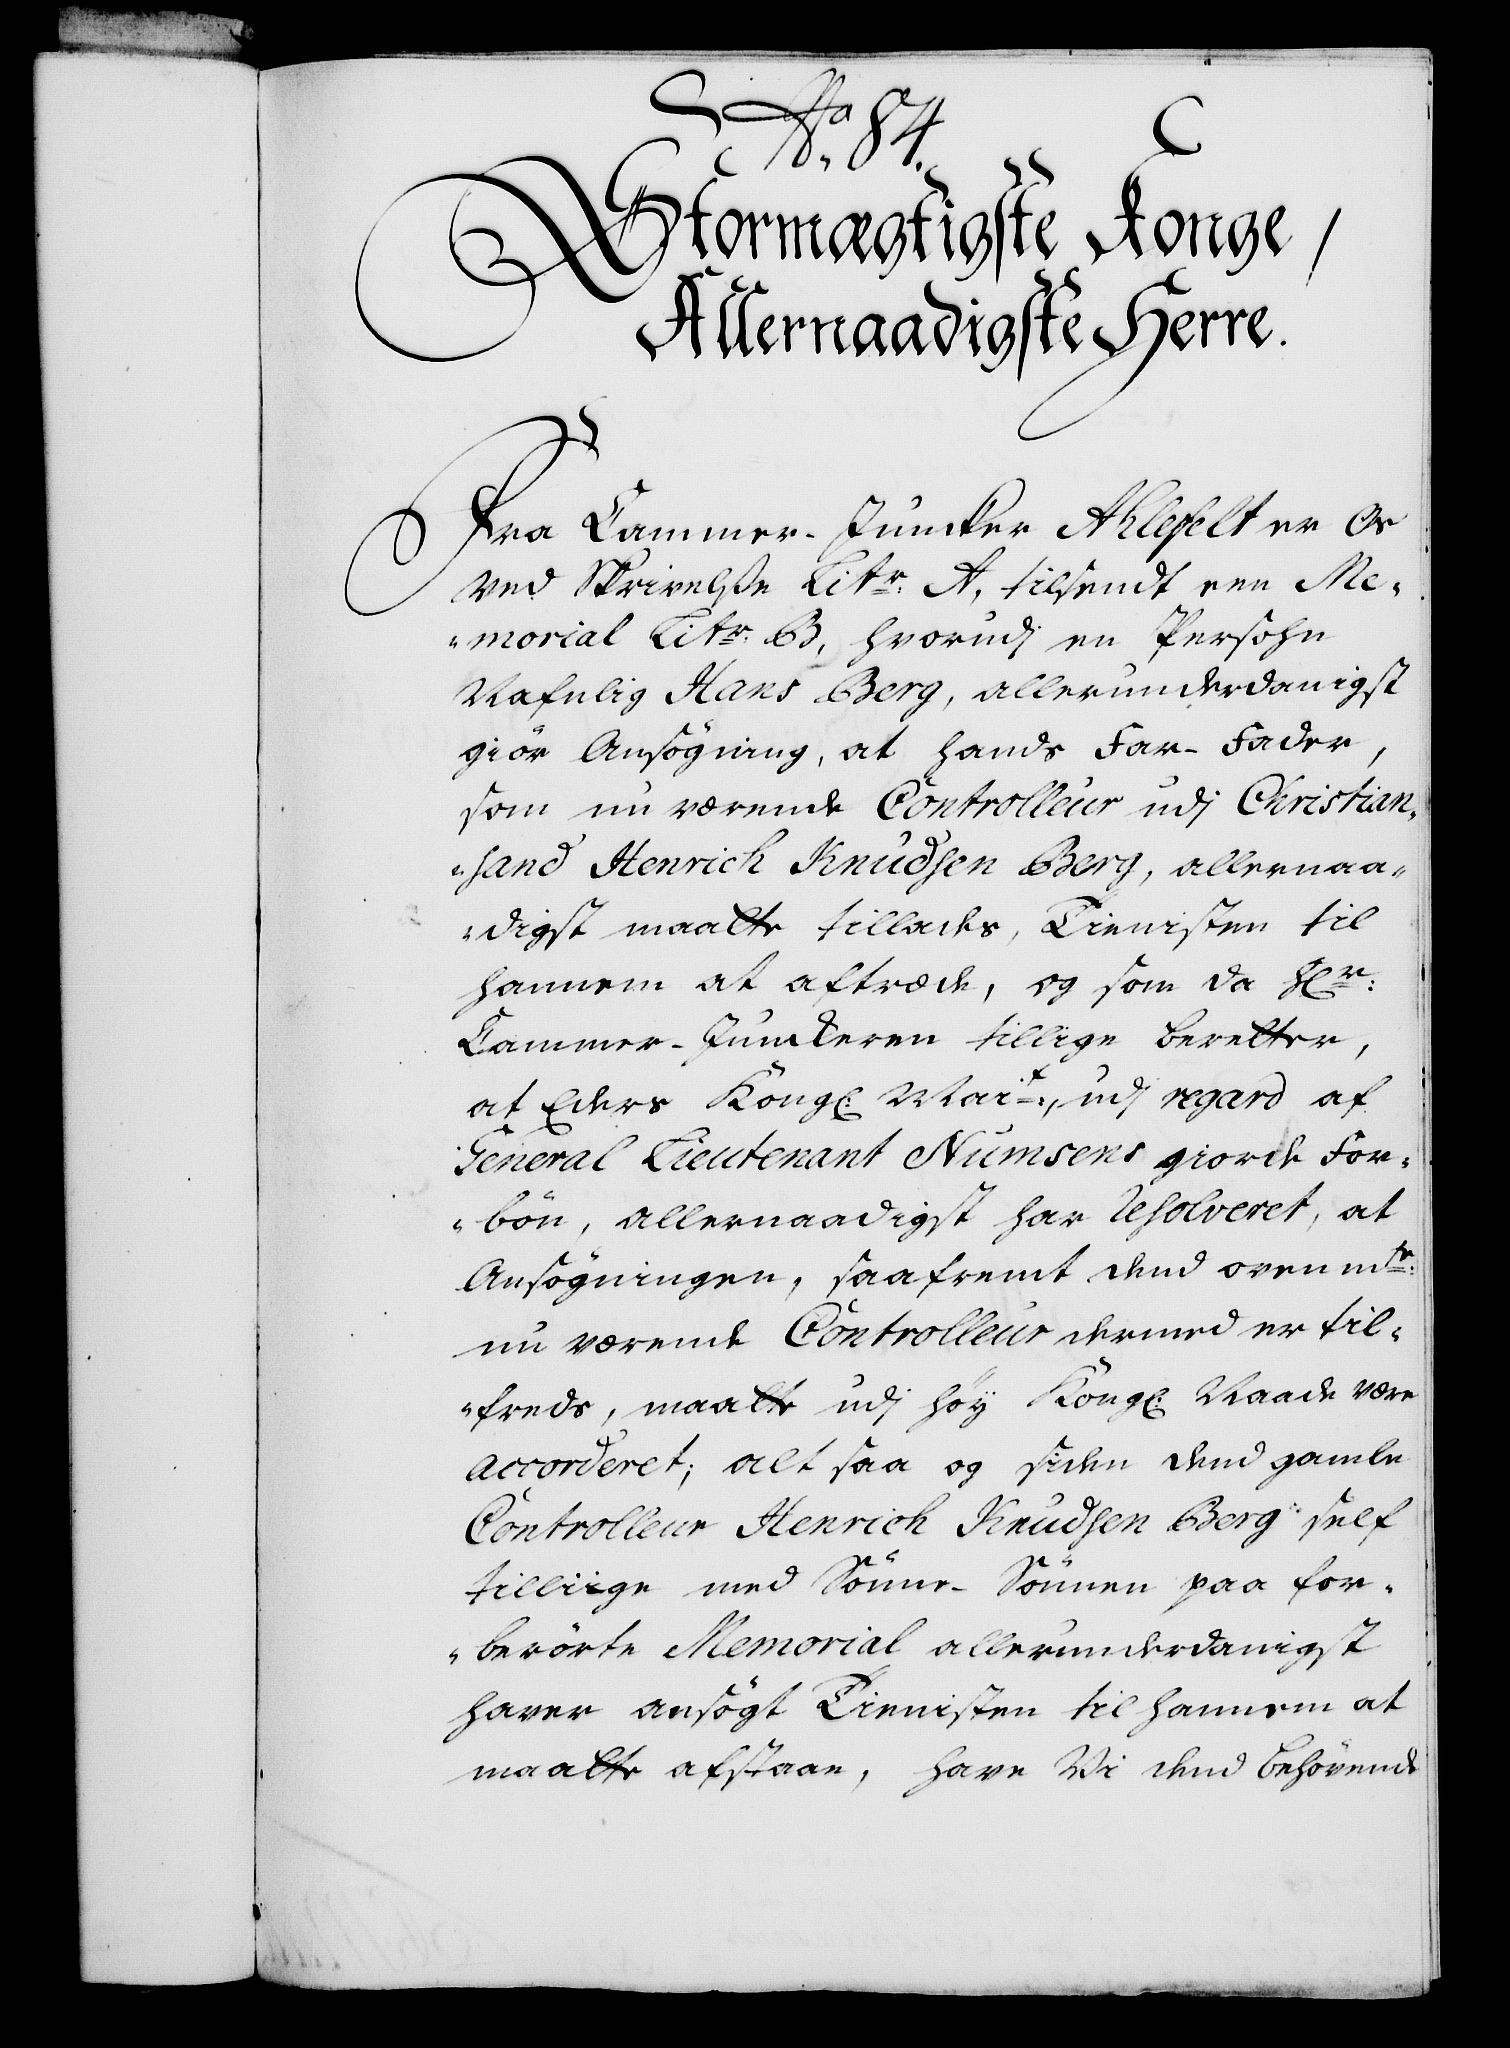 No. 84.
Stormægtigste Konge /
Allernaadigste Herre.
Fra Cammer-Juncker Ahlefelt er Os
ved Skrivelse Litr: A, tilsendt een Me-
-morial Litr: B, hvorudj en Persohn
Nafnlig Hans Berg, allerunderdanigst
giör Ansögning, at hands Far-Fader,
som nu værende Controlleur udj Christian-
-sand Henrich Knudsen Berg, allernaa-
-digst maatte tillades, Tienisten til
hannem at aftræde, og som da Hr:
Cammer-Junckeren tillige beretter,
at Eders Kongl: Mait:, udj regard af
General Lieutenant Numsens giorde For-
-bön, allernaadigst har Resolveret, at
Ansögningen, saafremt dend ovenmte:
nu værende Controlleur dermed er til-
-freds, maatte udj höy Kongl: Naade være
accorderet; alt saa og siden dend gamle
Controlleur Henrich Knudsen Berg self
tilliige med Sönne-Sönnen paa for-
-berörte Memorial allerunderdanigst
haver ansögt Tienisten til hannem at
maatte afstaae, have Vi dend behörende